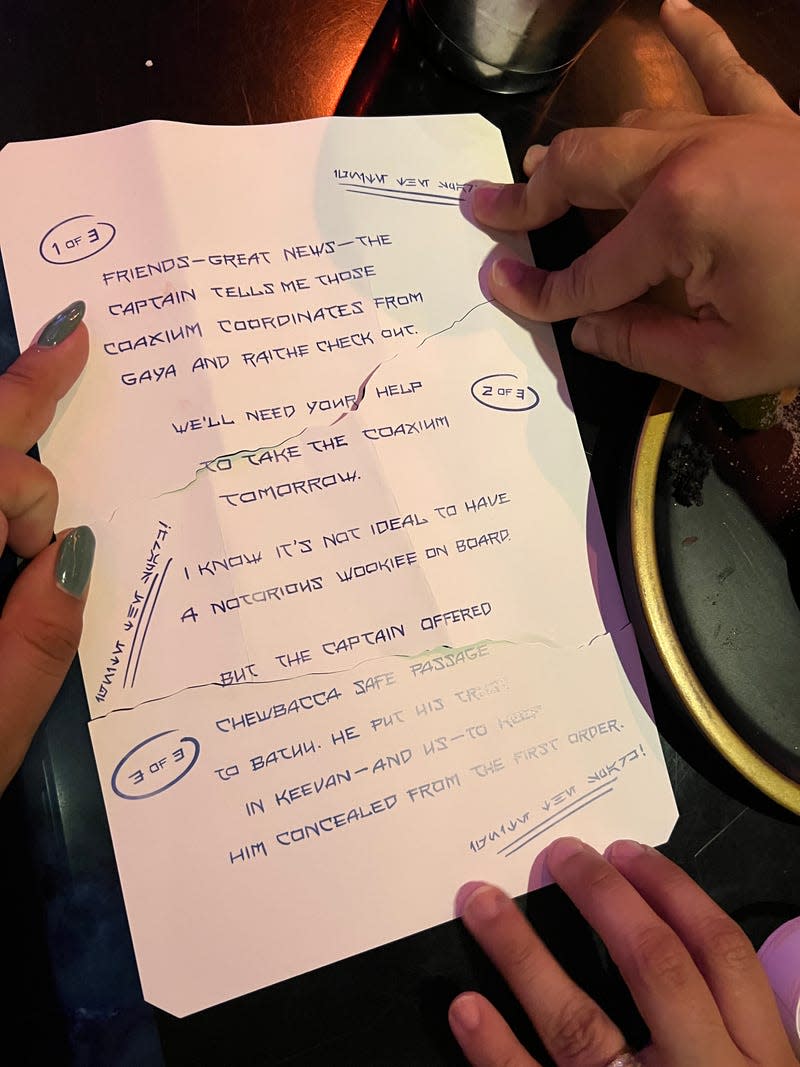 1 OF 3
FRIENDS—GREAT NEWS—THE
CAPTAIN TELLS ME THOSE
COAXIUM COORDINATES FROM
GAYA AND RAITHE CHECK OUT.
WE'LL NEED YOUR HELP
2 OF 3
TO TAKE THE COAXIUM
TOMORROW.
I KNOW IT'S NOT IDEAL TO HAVE
A NOTORIOUS WOOKIEE ON BOARD.
BUT THE CAPTAIN OFFERED
CHEWBACCA SAFE PASSAGE
3 OF 3
TO BATUU. HE PUT HIS TRUST
IN KEEVAN—AND US—TO KEEP
HIM CONCEALED FROM THE FIRST ORDER.